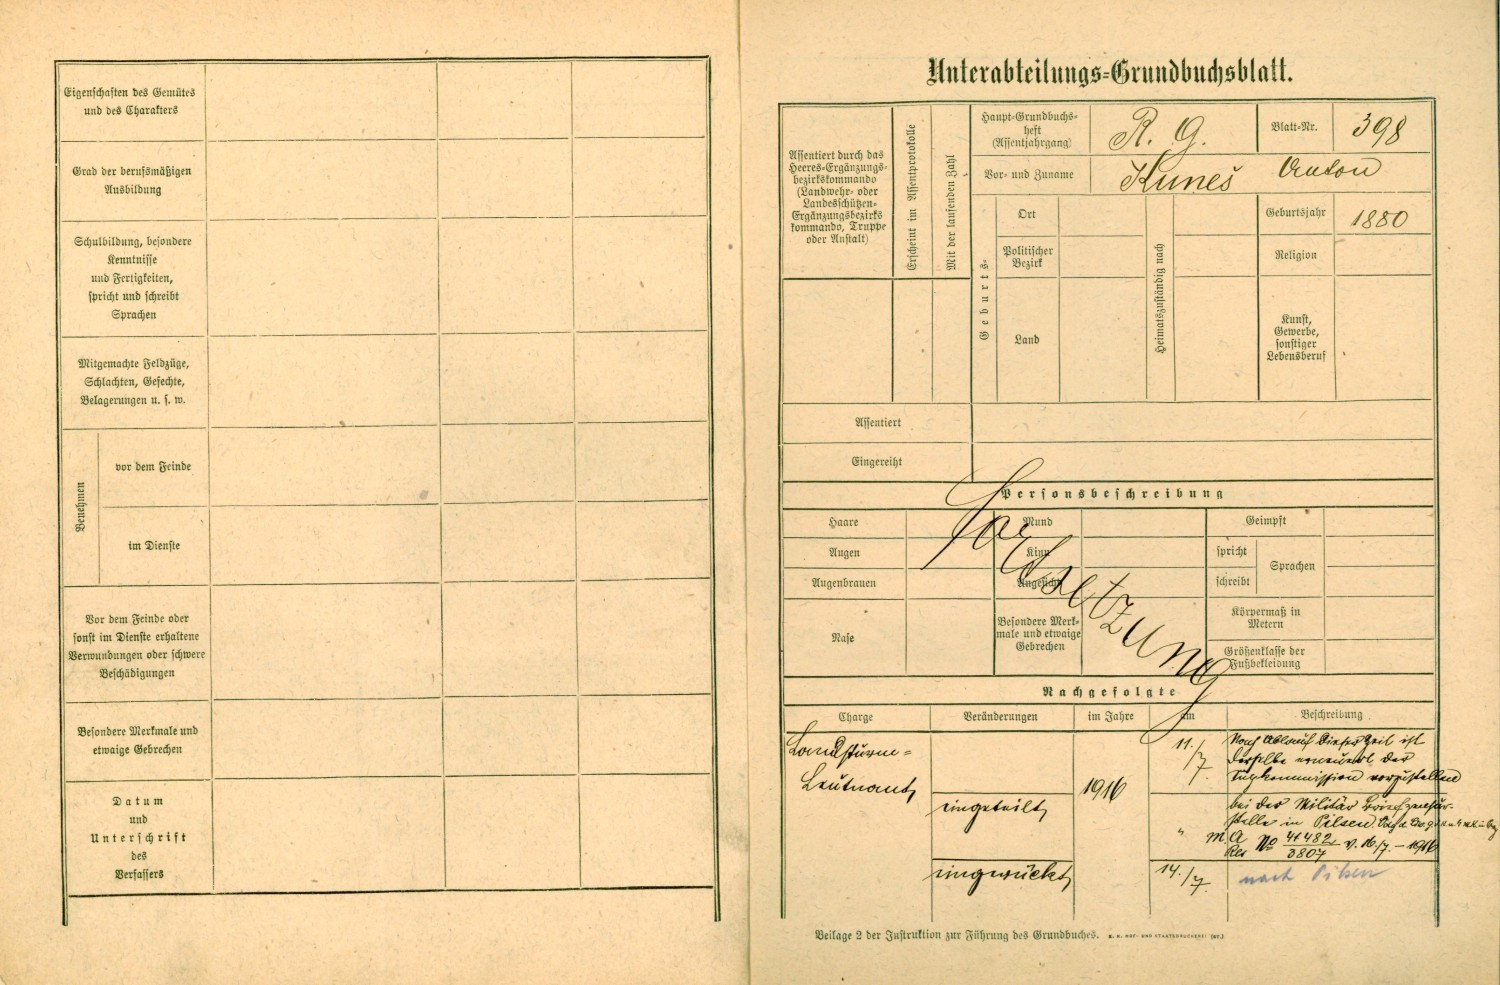 Eigenschaften des Gemütes
und des Charakters
Grad der berufsmäßigen
Ausbildung
Schulbildung, besondere
Kenntnisse
und Fertigkeiten,
spricht und schreibt
Sprachen
Mitgemachte Feldzüge,
Schlachten, Gefechte,
Belagerungen u. s. w.
Benehmen
vor dem Feinde
im Dienste
Vor dem Feinde oder
sonst im Dienste erhaltene
Verwundungen oder schwere
Beschädigungen
Besondere Merkmale und
etwaige Gebrechen
Datum
und
Unterschrift
des
Verfassers
Unterabteilungs-Grundbuchsblatt.
Assentiert durch das
Heeres-Ergänzungs-
bezirkskommando
(Landwehr- oder
Landesschützen-
Ergänzungsbezirks
kommando, Truppe
oder Anstalt)
Erscheint im Assentprotokolle
Mit der laufenden Zahl
Haupt-Grundbuchs-
heft
(Assentjahrgang)
R. G.
Blatt-Nr.
398
Vor- und Zuname
Kuneš Anton
Geburts-
Ort
Politischer
Bezirk
Land
Heimatszuständig nach
Geburtsjahr
1880
Religion
Kunst,
Gewerbe,
sonstiger
Lebensberuf
Assentiert
Eingereiht
Personsbeschreibung
Haare
Augen
Augenbrauen
Nase
Mund
Kinn
Angesicht
Besondere Merk-
male und etwaige
Gebrechen
Geimpft
spricht
schreibt
Sprachen
Körpermaß in
Metern
Größenklasse der
Fußbekleidung
Fortsetzung
Nachgefolgte
Charge
Veränderungen
im Jahre
am
Beschreibung
Landsturm-
Leutnant
1916
11./7.
Nach Ablauf dieser Zeit ist
derselbe erneuert der
Supkommission vorzustellen
eingeteilt
"
bei der Militär Briefzensur-
stelle in Pilsen.
M. A
Res No 41482/3807 v. 16/7. – 1916
eingerückt
14./7.
nach Pilsen
Beilage 2 der Instruktion zur Führung des Grundbuches.
K. K. HOF- UND STAATSDRUCKEREI